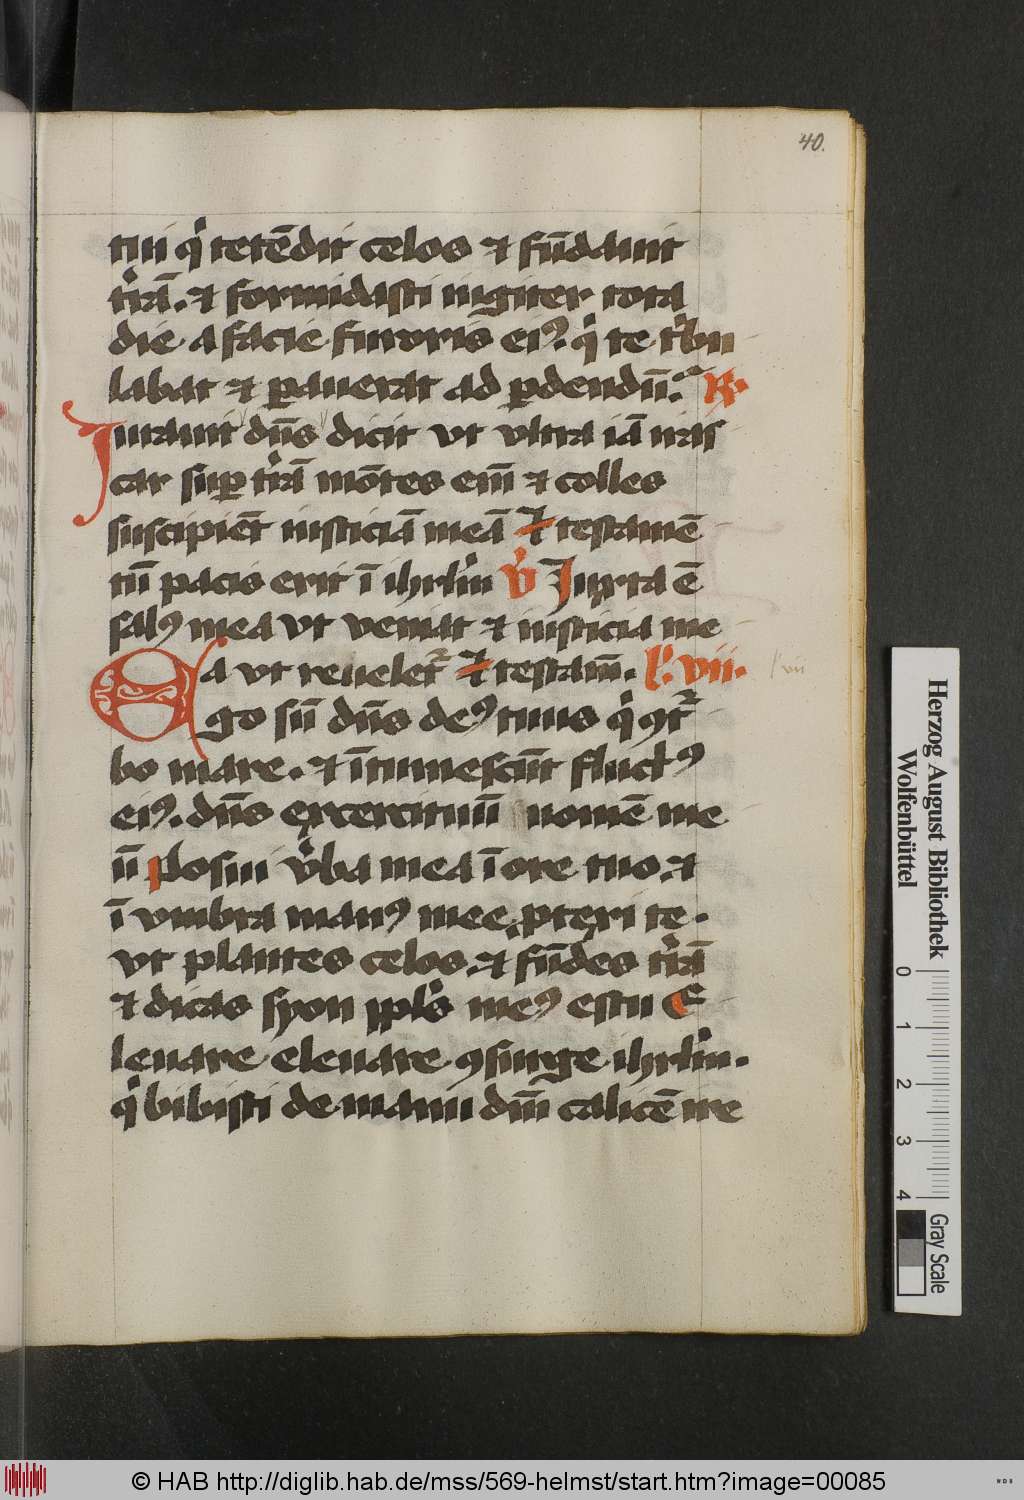 40.
tui qͥ tetēdit celos et fūdauit
tͥrā. et formidasti iugiter tota
die a facie furoris eiꝰ. qͥ te tͥbu
labat et ꝑauerat ad ꝑdendū. R.
Iurauit dn̄s dicit vt vltra iā iras
car suꝑ tͥrā mōtes em̄ et colles
suscipiēt iusticiā meā et testamē
tū pacis erit ī ihrlm̄ v̊ Iuxta ē
salꝰ mea vt veniat et iusticia me
a vt reuelet᷑ et testam̄. l. vii.
l vii
Ego sū dn̄s deꝰ tuus qͥ ꝯt᷑
bo mare. et ītumescūt fluctꝰ
eiꝰ. dn̄s exercituū nomē me
ū Posui v̊ba mea ī ore tuo. et
ī vmbra manꝰ mee ꝓtexi te.
vt plantes celos. et fūdes tͥrā
et dicas syon ppl̄s meꝰ es tu E
leuare eleuare ꝯsurge ihrlm̄.
qͥ bibisti de manu dm̄ calicē ire
Herzog August Bibliothek
Wolfenbüttel
0 1 2 3 4
Gray Scale
© HAB http://diglib.hab.de/mss/569-helmst/start.htm?image=00085